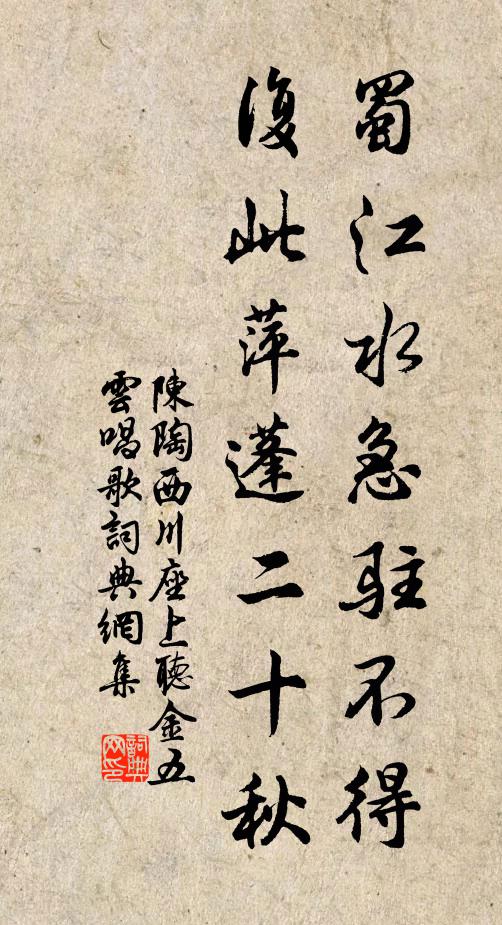 蜀江水急駐不得
復此萍蓬二十秋
陳陶西川座上聽金五
雲唱歌詞典網集
詞典
网印